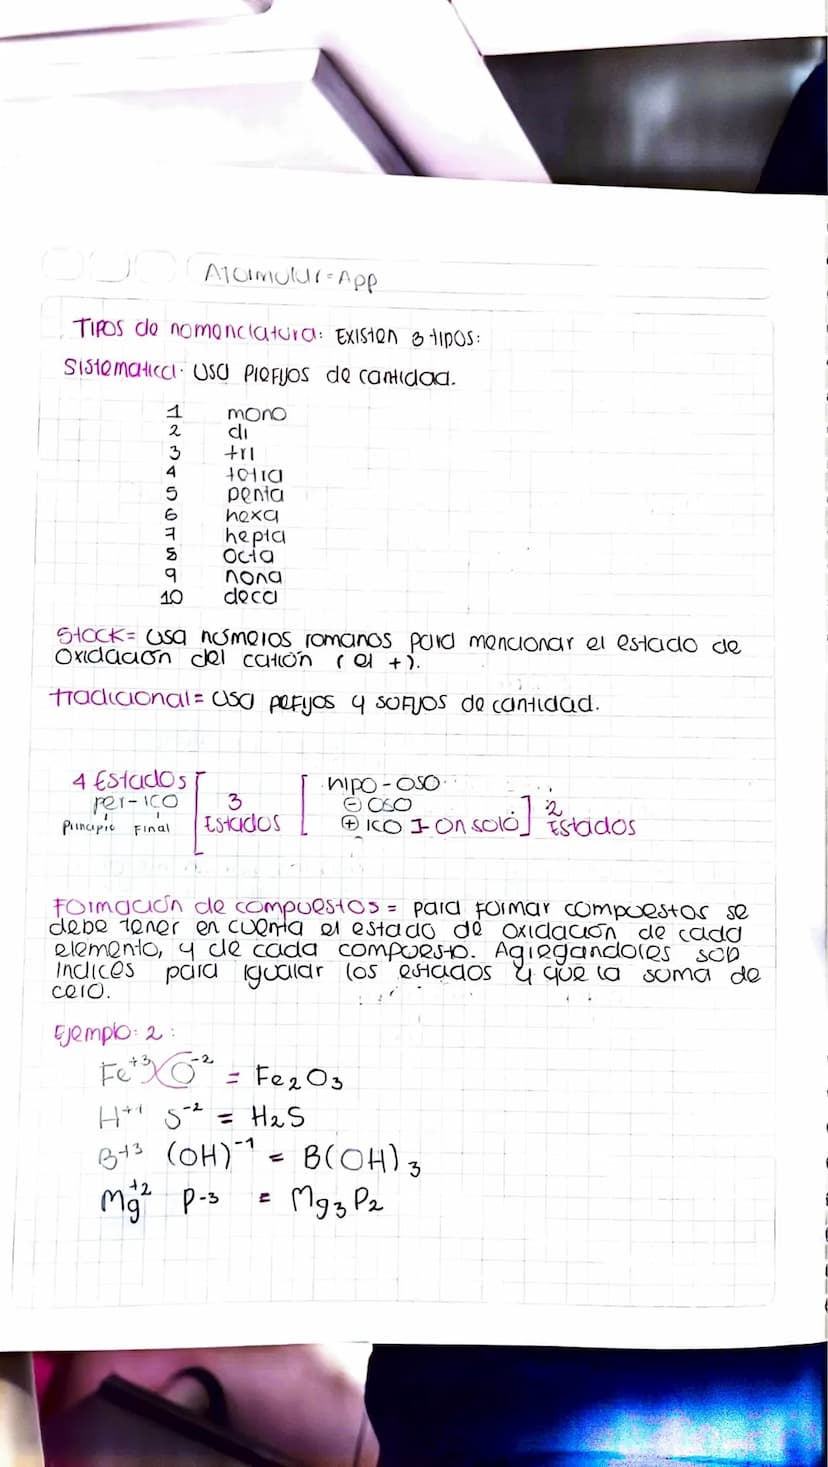 Atomulur = App
Tipos de nomenclatura: Existen 3 tipos:
Sistematica: usa prefijos de cantidad.
1 mono
2 di
3 tri
4 tetra
5 penta
6 hexa
7 hepta
8 octa
9 nona
10 deca
Stock= usa números romanos para mencionar el estado de
oxidación del catión (el +).
tradicional= usa prefijos y sufijos de cantidad.
4 Estados [ 3 Estados [ hipo-oso
per-ico ⊖ oso
Principio Final ⊕ ico I-on solo] 2 Estados
Formación de compuestos = para formar compuestos se
debe tener en cuenta el estado de oxidación de cada
elemento, y de cada compuesto. Agregandoles sub
indices para igualar los estados y que la suma de
cero.
Ejemplo: 2:
Fe⁺³ O⁻² = Fe₂O₃
H⁺¹ S⁻² = H₂S
B⁺³ (OH)⁻¹ = B(OH)₃
Mg⁺² P-3 = Mg₃P₂